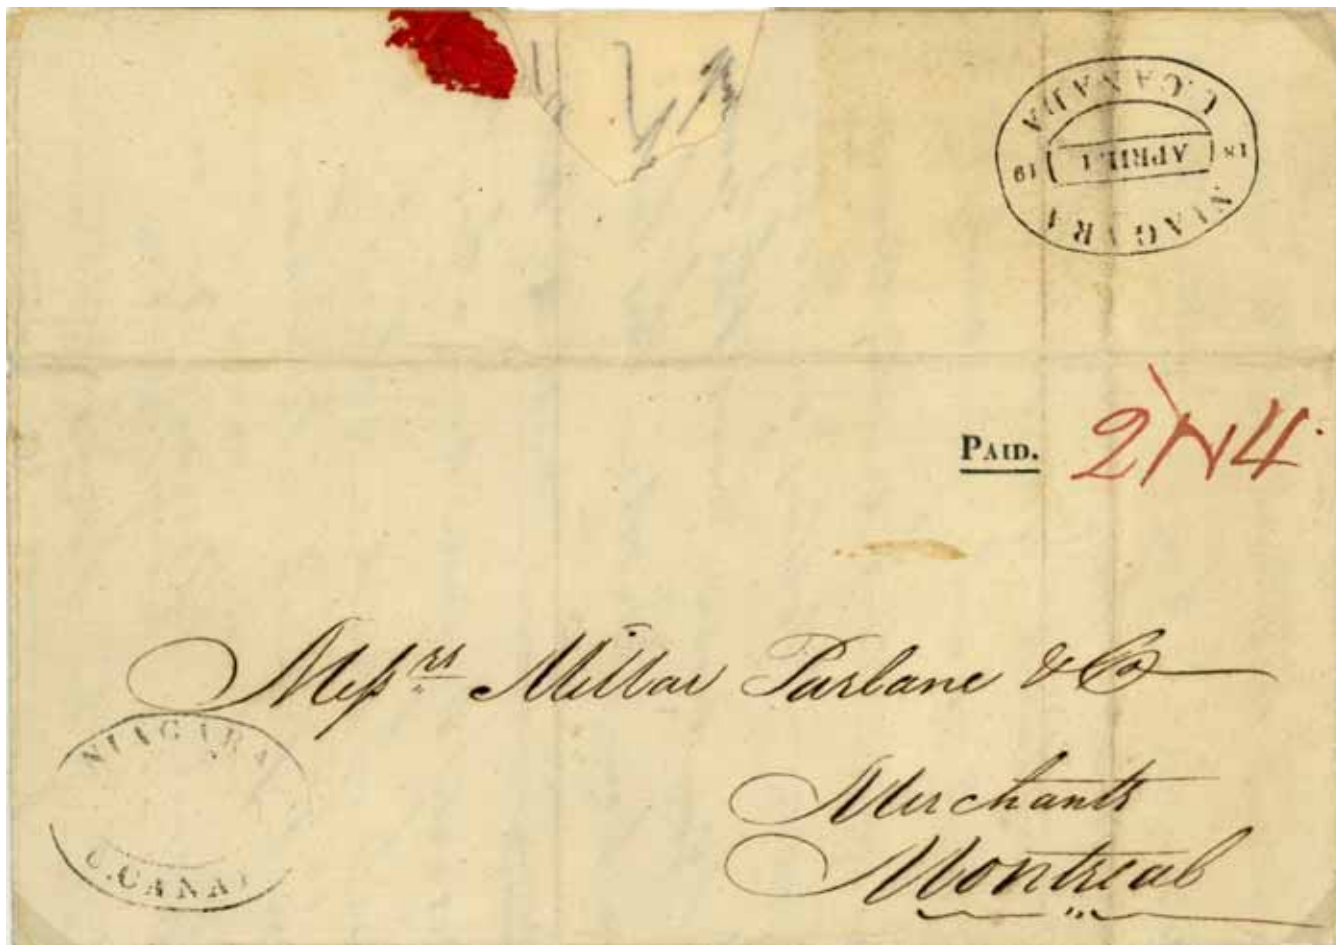 U.CANADA
18 APRIL 1 19
NIAGARA
PAID. 2N4
Messrs Millar Parlane & Co
Merchants
Montreal
NIAGARA
U.CANA